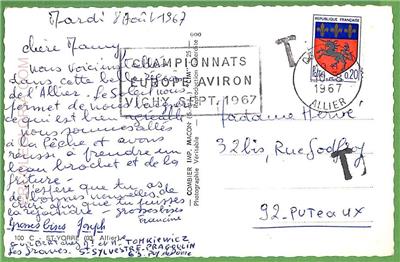 Mardi 8 Août 1967
Chère Mamy
nous voici
dans cette belle
de l'Allier. Le soleil nous
permet de
ce qui est bien agréable
nous sommes allés
à la pêche et avons
réussi à prendre un
beau brochet et de la
friture.
J'espère que tu as
de bonnes nouvelles de
que tu puisses
la rejoindre - grosses bises
Francine
Grosses bises Joseph
TOMKIEWICZ
ST-SYLVESTRE-PRAGOULIN
63. Puy de Dôme
100 C - ST-YORRE (03. Allier)
COMBIER IMP. MACON
Photographie Véritable
CHAMPIONNATS
EUROPE AVIRON
VICHY SEPT. 1967
REPUBLIQUE FRANÇAISE
0,20
1967
ALLIER
T
T
Madame Hervé
32bis, Rue Godefroy
92-PUTEAUX